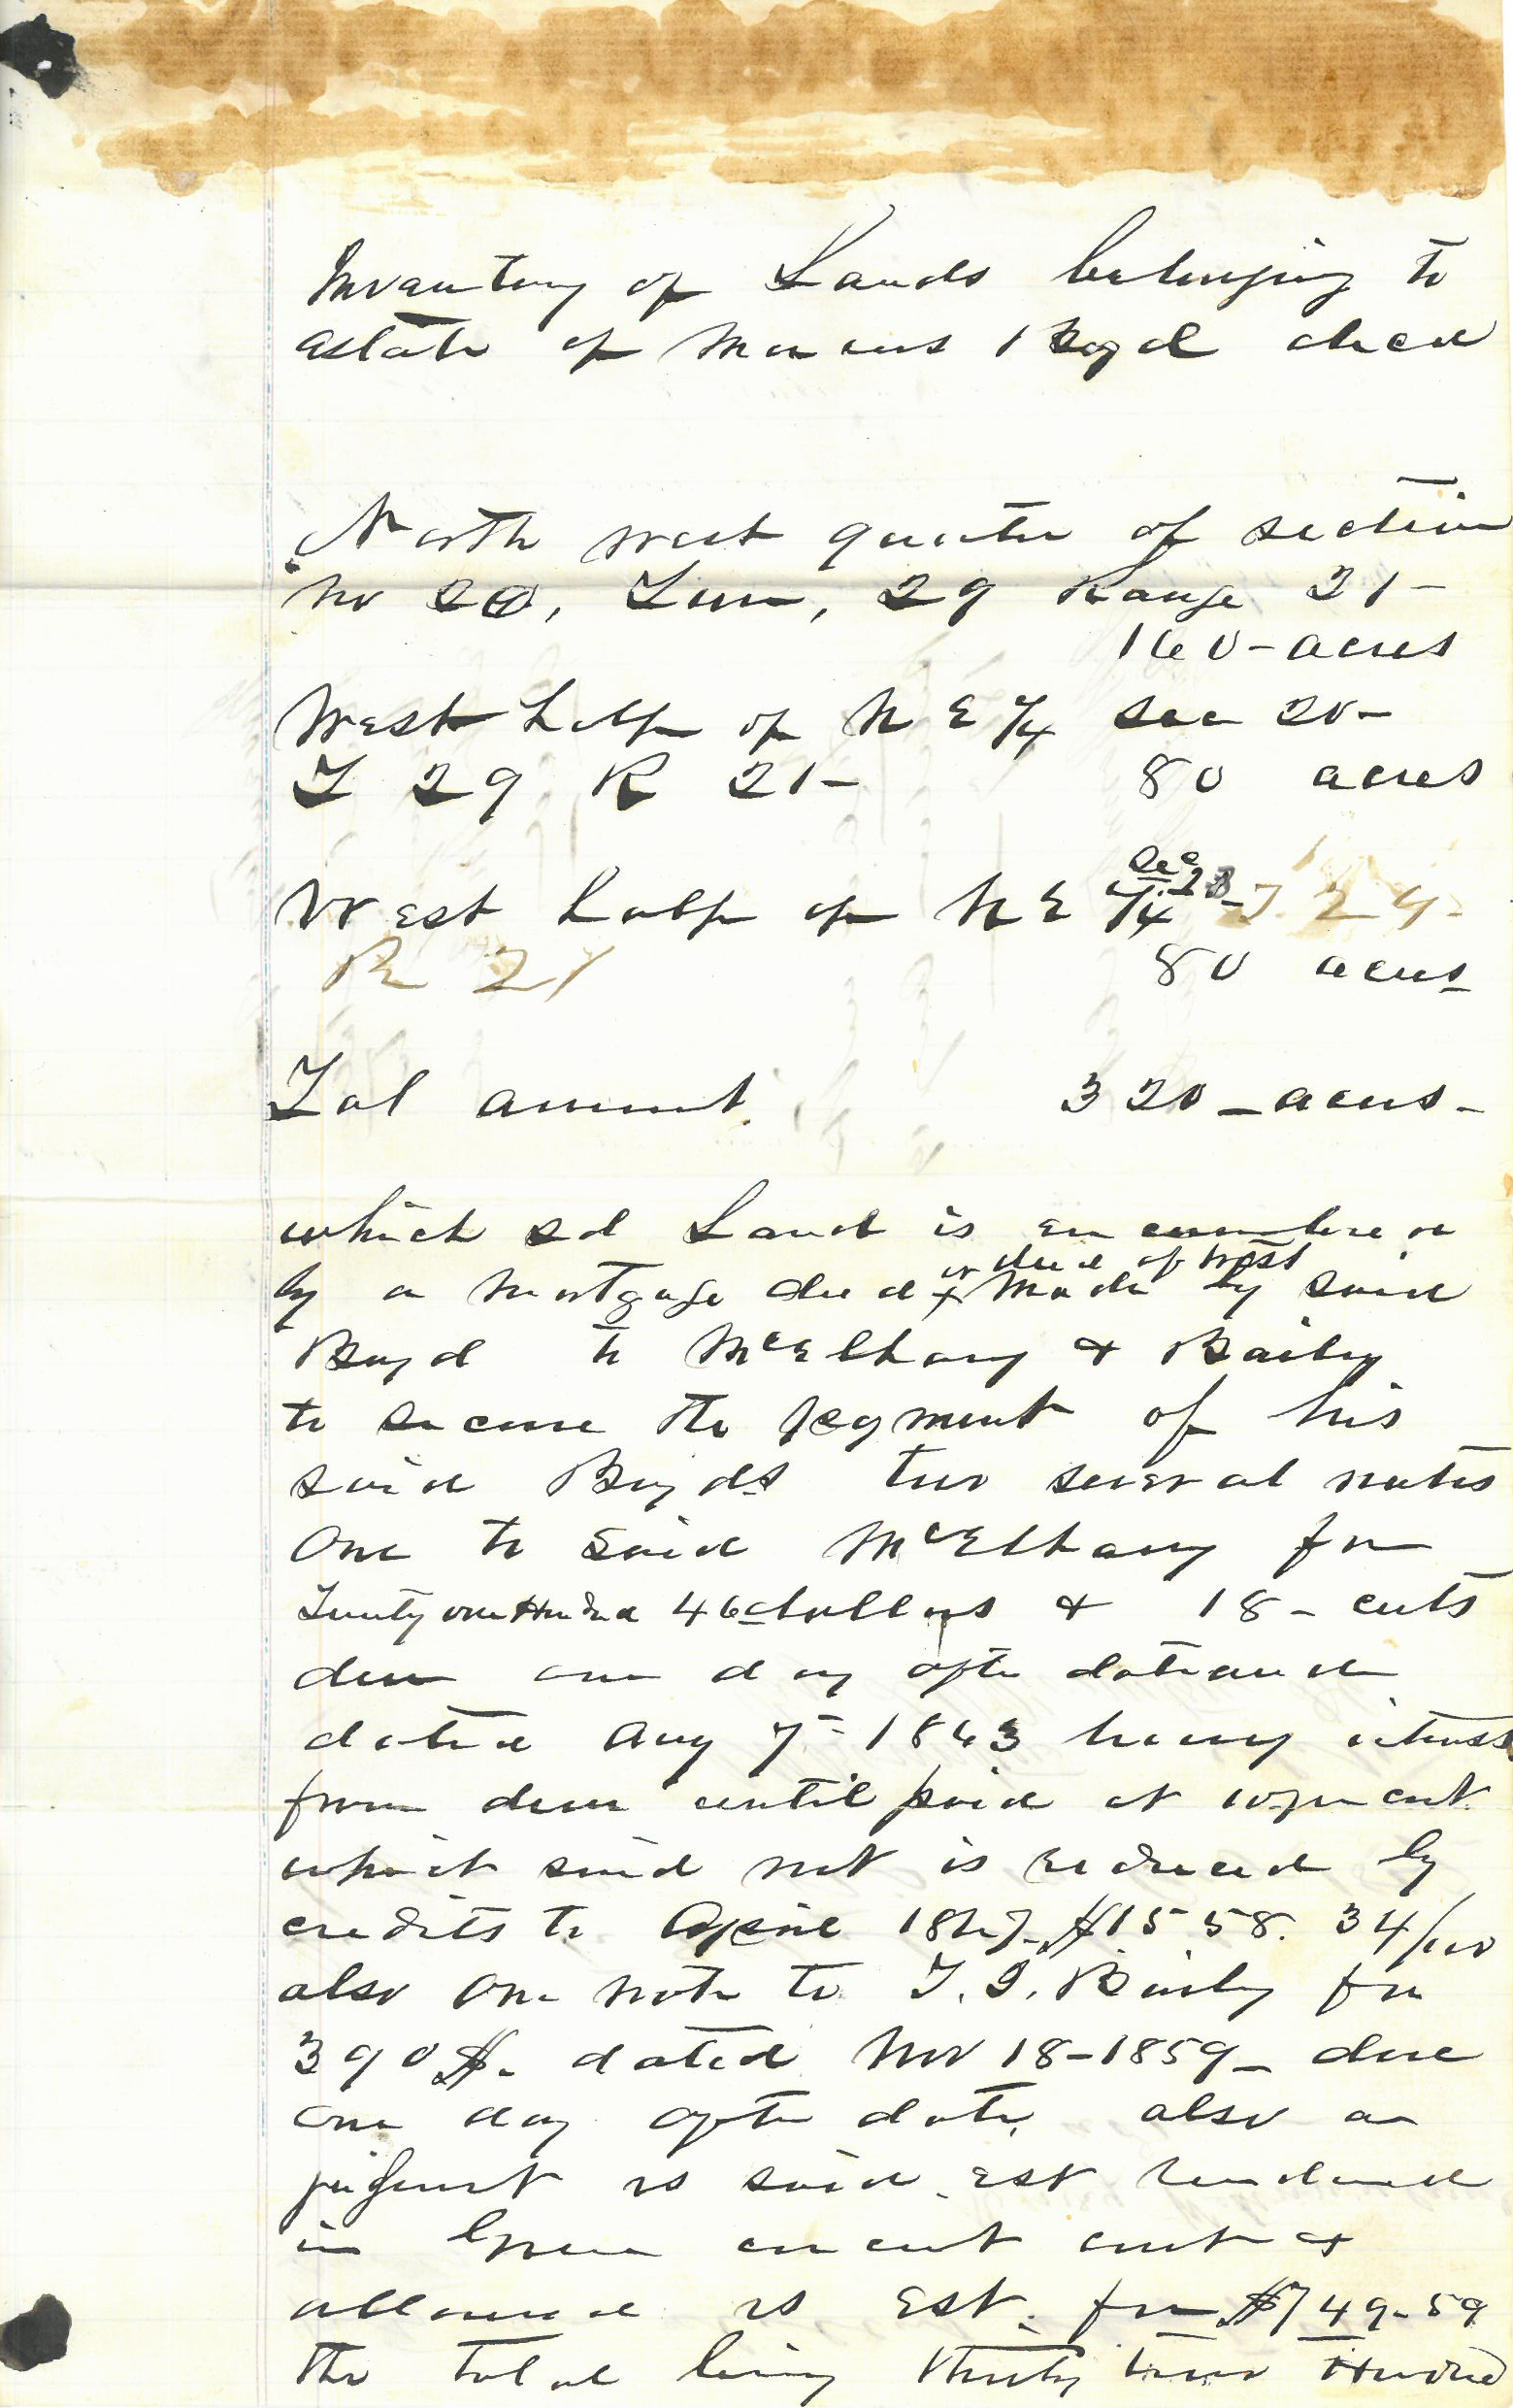 Inventory of Lands belonging to
estate of Marcus Boyd decd
North west quarter of section
no 20, Town, 29 Range 21-
160-acres
West half of N E 1/4 sec 20-
T 29 R 21- 80 acres
West half of N E 1/4 Sec 28- T. 29-
R 21 80 acres
Tol amount. 320-acres-
which sd Land is encumbered
or deed of trust
by a mortgage deed + made by said
Boyd to McElhany & Baily
to secure the payment of his
said Boyds two several notes
One to said McElhany for
Twenty one Hundred 46 dollars & 18-cents
due one day after date and
dated Aug 7- 1863 bearing interest
from due until paid at 10 per cent
which said not is reduced by
credits to April 1867- $1558. 34/100
also one note to T. J. Baily for
390$. dated Nov 18-1859- due
one day after date, also a
judgment vs said est rendered
in Green circuit court &
allowed vs Est. for $749-59
the total being thirty Hundred